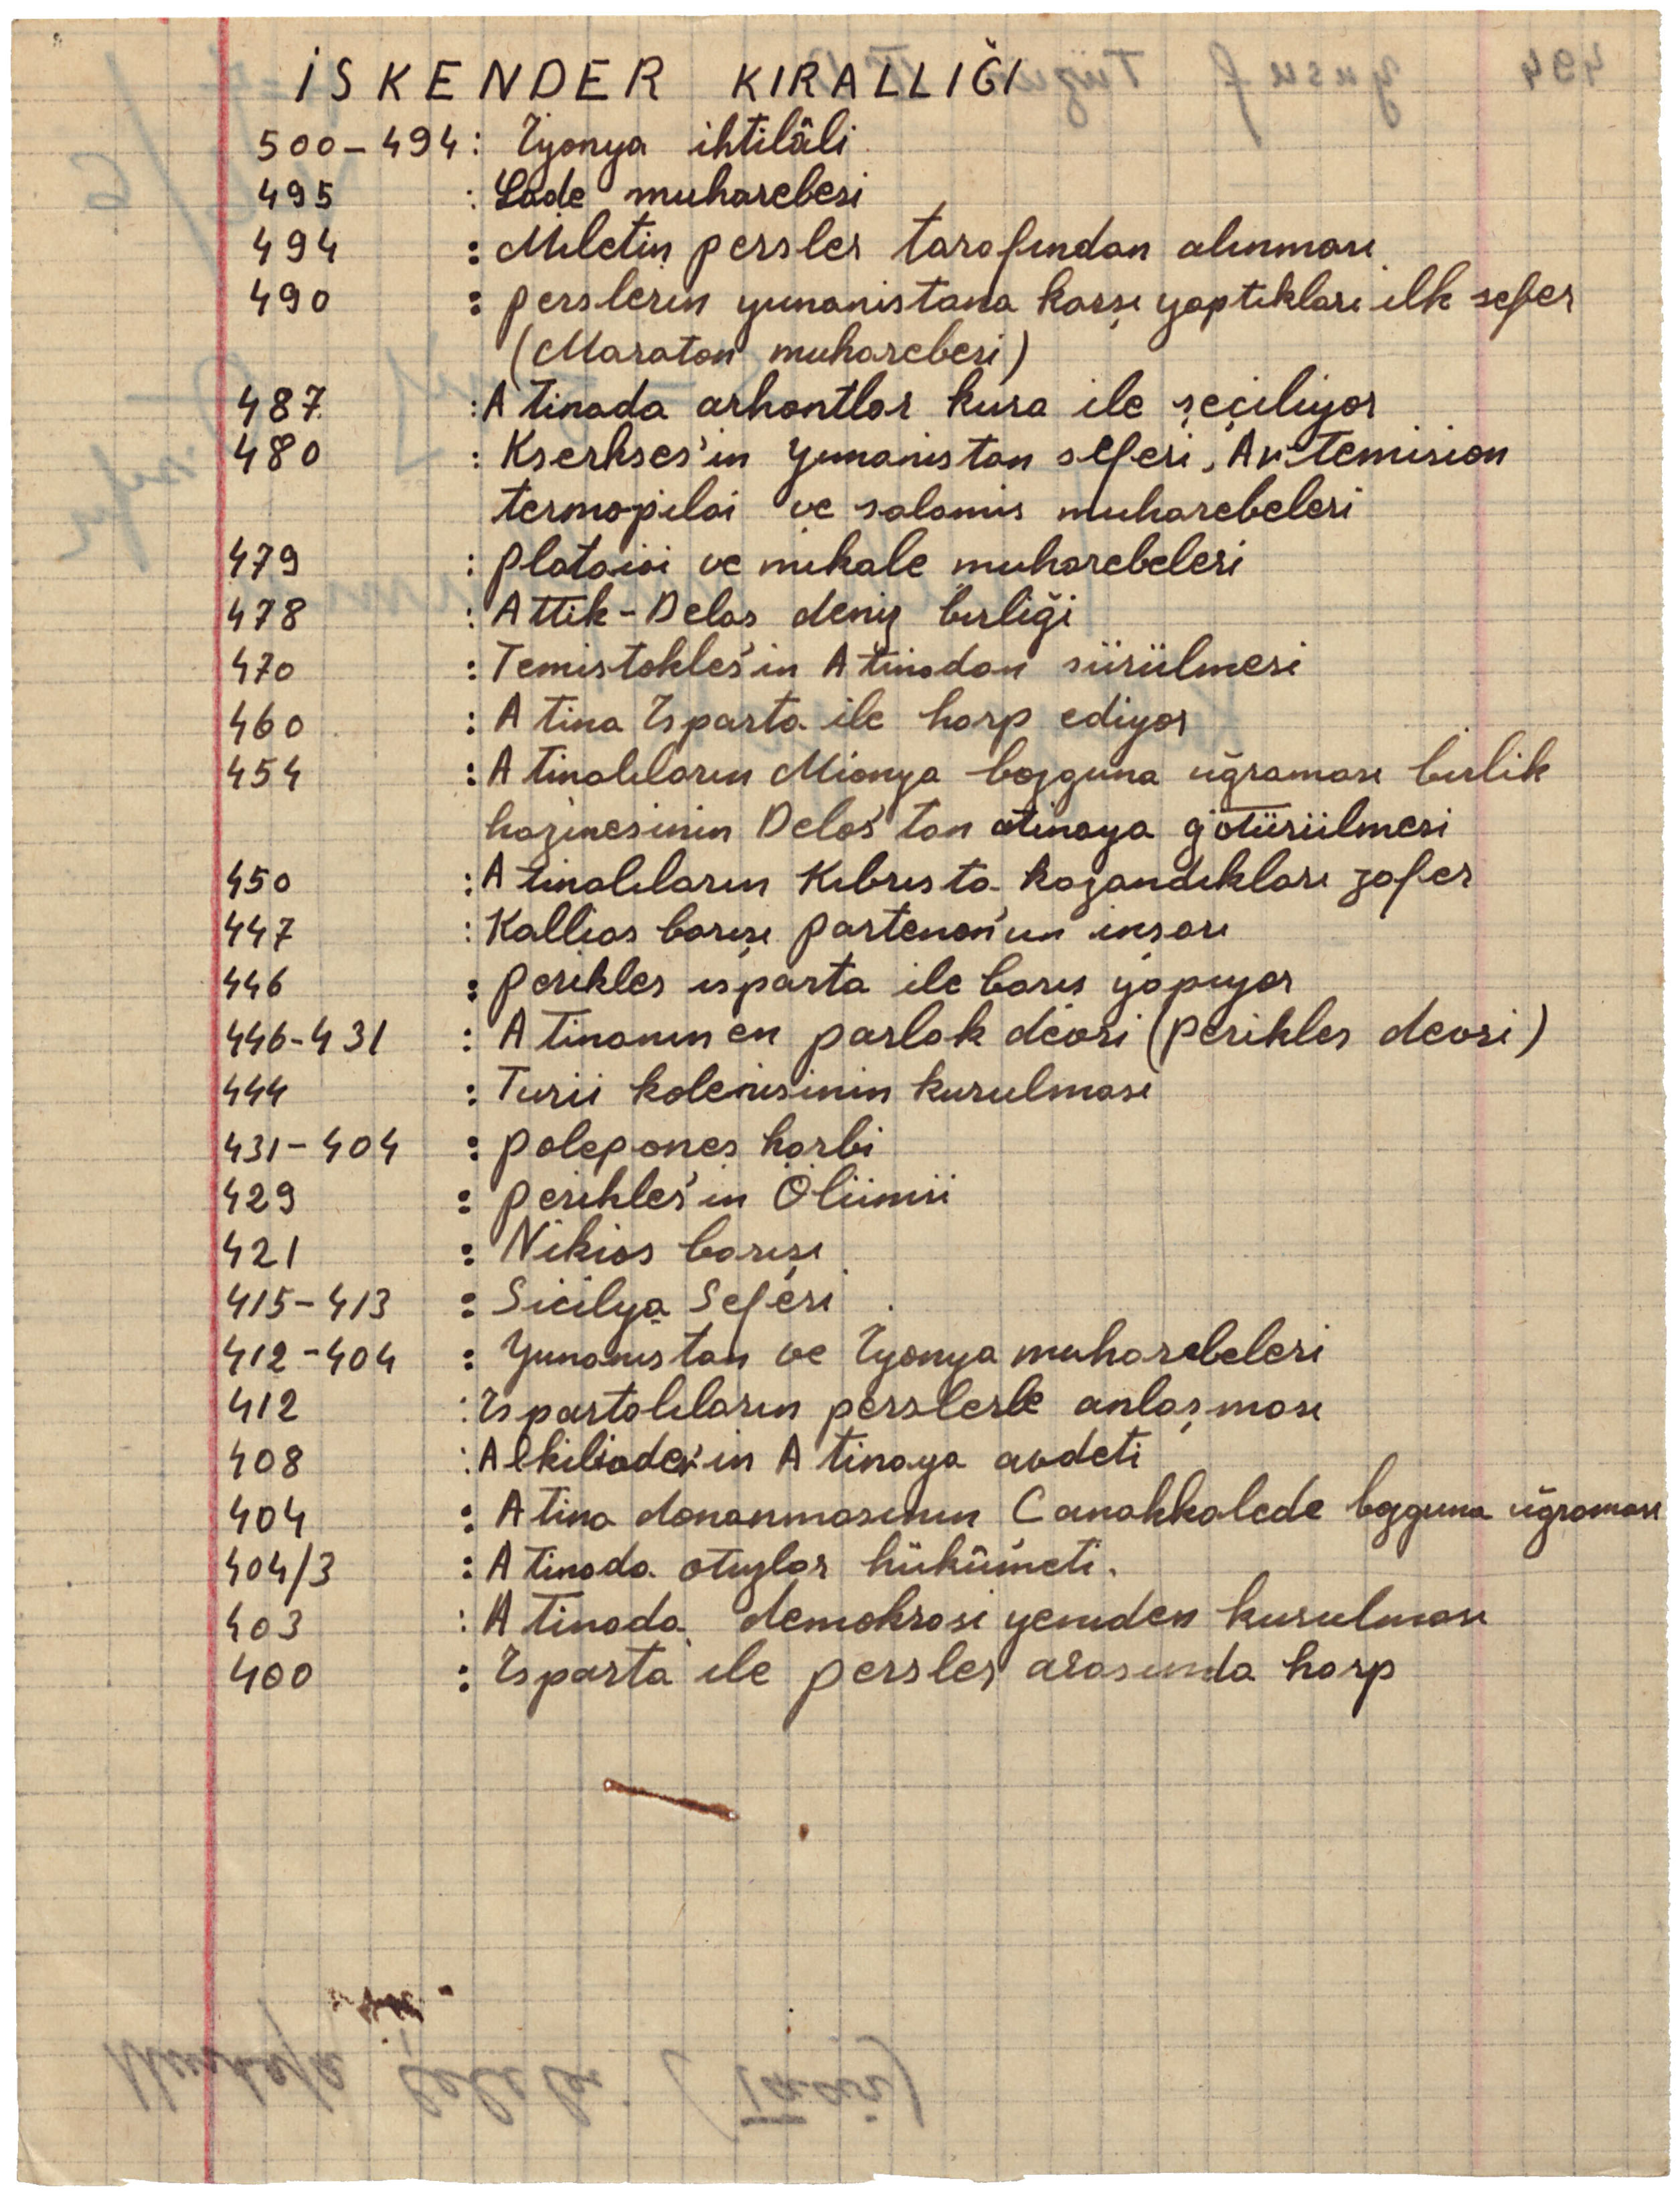 İSKENDER KIRALLIĞI
500-494: İyonya ihtilâli
495 : Lade muharebesi
494 : Miletin persler tarafından alınması
490 : perslerin yunanistana karşı yaptıkları ilk sefer
(Maraton muharebesi)
487 : Atinada arhontlar kura ile seçiliyor
480 : Kserkses'in Yunanistan seferi, Artemision
termopilai ve salamis muharebeleri
479 : plataiai ve mikale muharebeleri
478 : Attik-Delos deniz birliği
470 : Temistokles'in Atinadan sürülmesi
460 : Atina Isparta ile harp ediyor
454 : Atinalıların Mionya bozguna uğraması birlik
hazinesinin Delos'tan atinaya götürülmesi
450 : Atinalıların Kıbrısta kazandıkları zafer
447 : Kallias barışı partenon'un inşası
446 : perikles ısparta ile barış yapıyor
446-431 : Atinanın en parlak devri (perikles devri)
444 : Turii kolenisinin kurulması
431-404 : polepones harbi
429 : perikles'in Ölümü
421 : Nikias barışı
415-413 : Sicilya Seferi
412-404 : Yunanistan ve İyonya muharebeleri
412 : Ispartalıların perslerle anlaşması
408 : Alkibiades'in Atinaya avdeti
404 : Atina donanmasının Canakkalede bozguna uğraması
404/3 : Atinada otuzlar hükümeti.
403 : Atinada demokrasi yeniden kurulması
400 : Isparta ile persler arasında harp
494 Yusuf